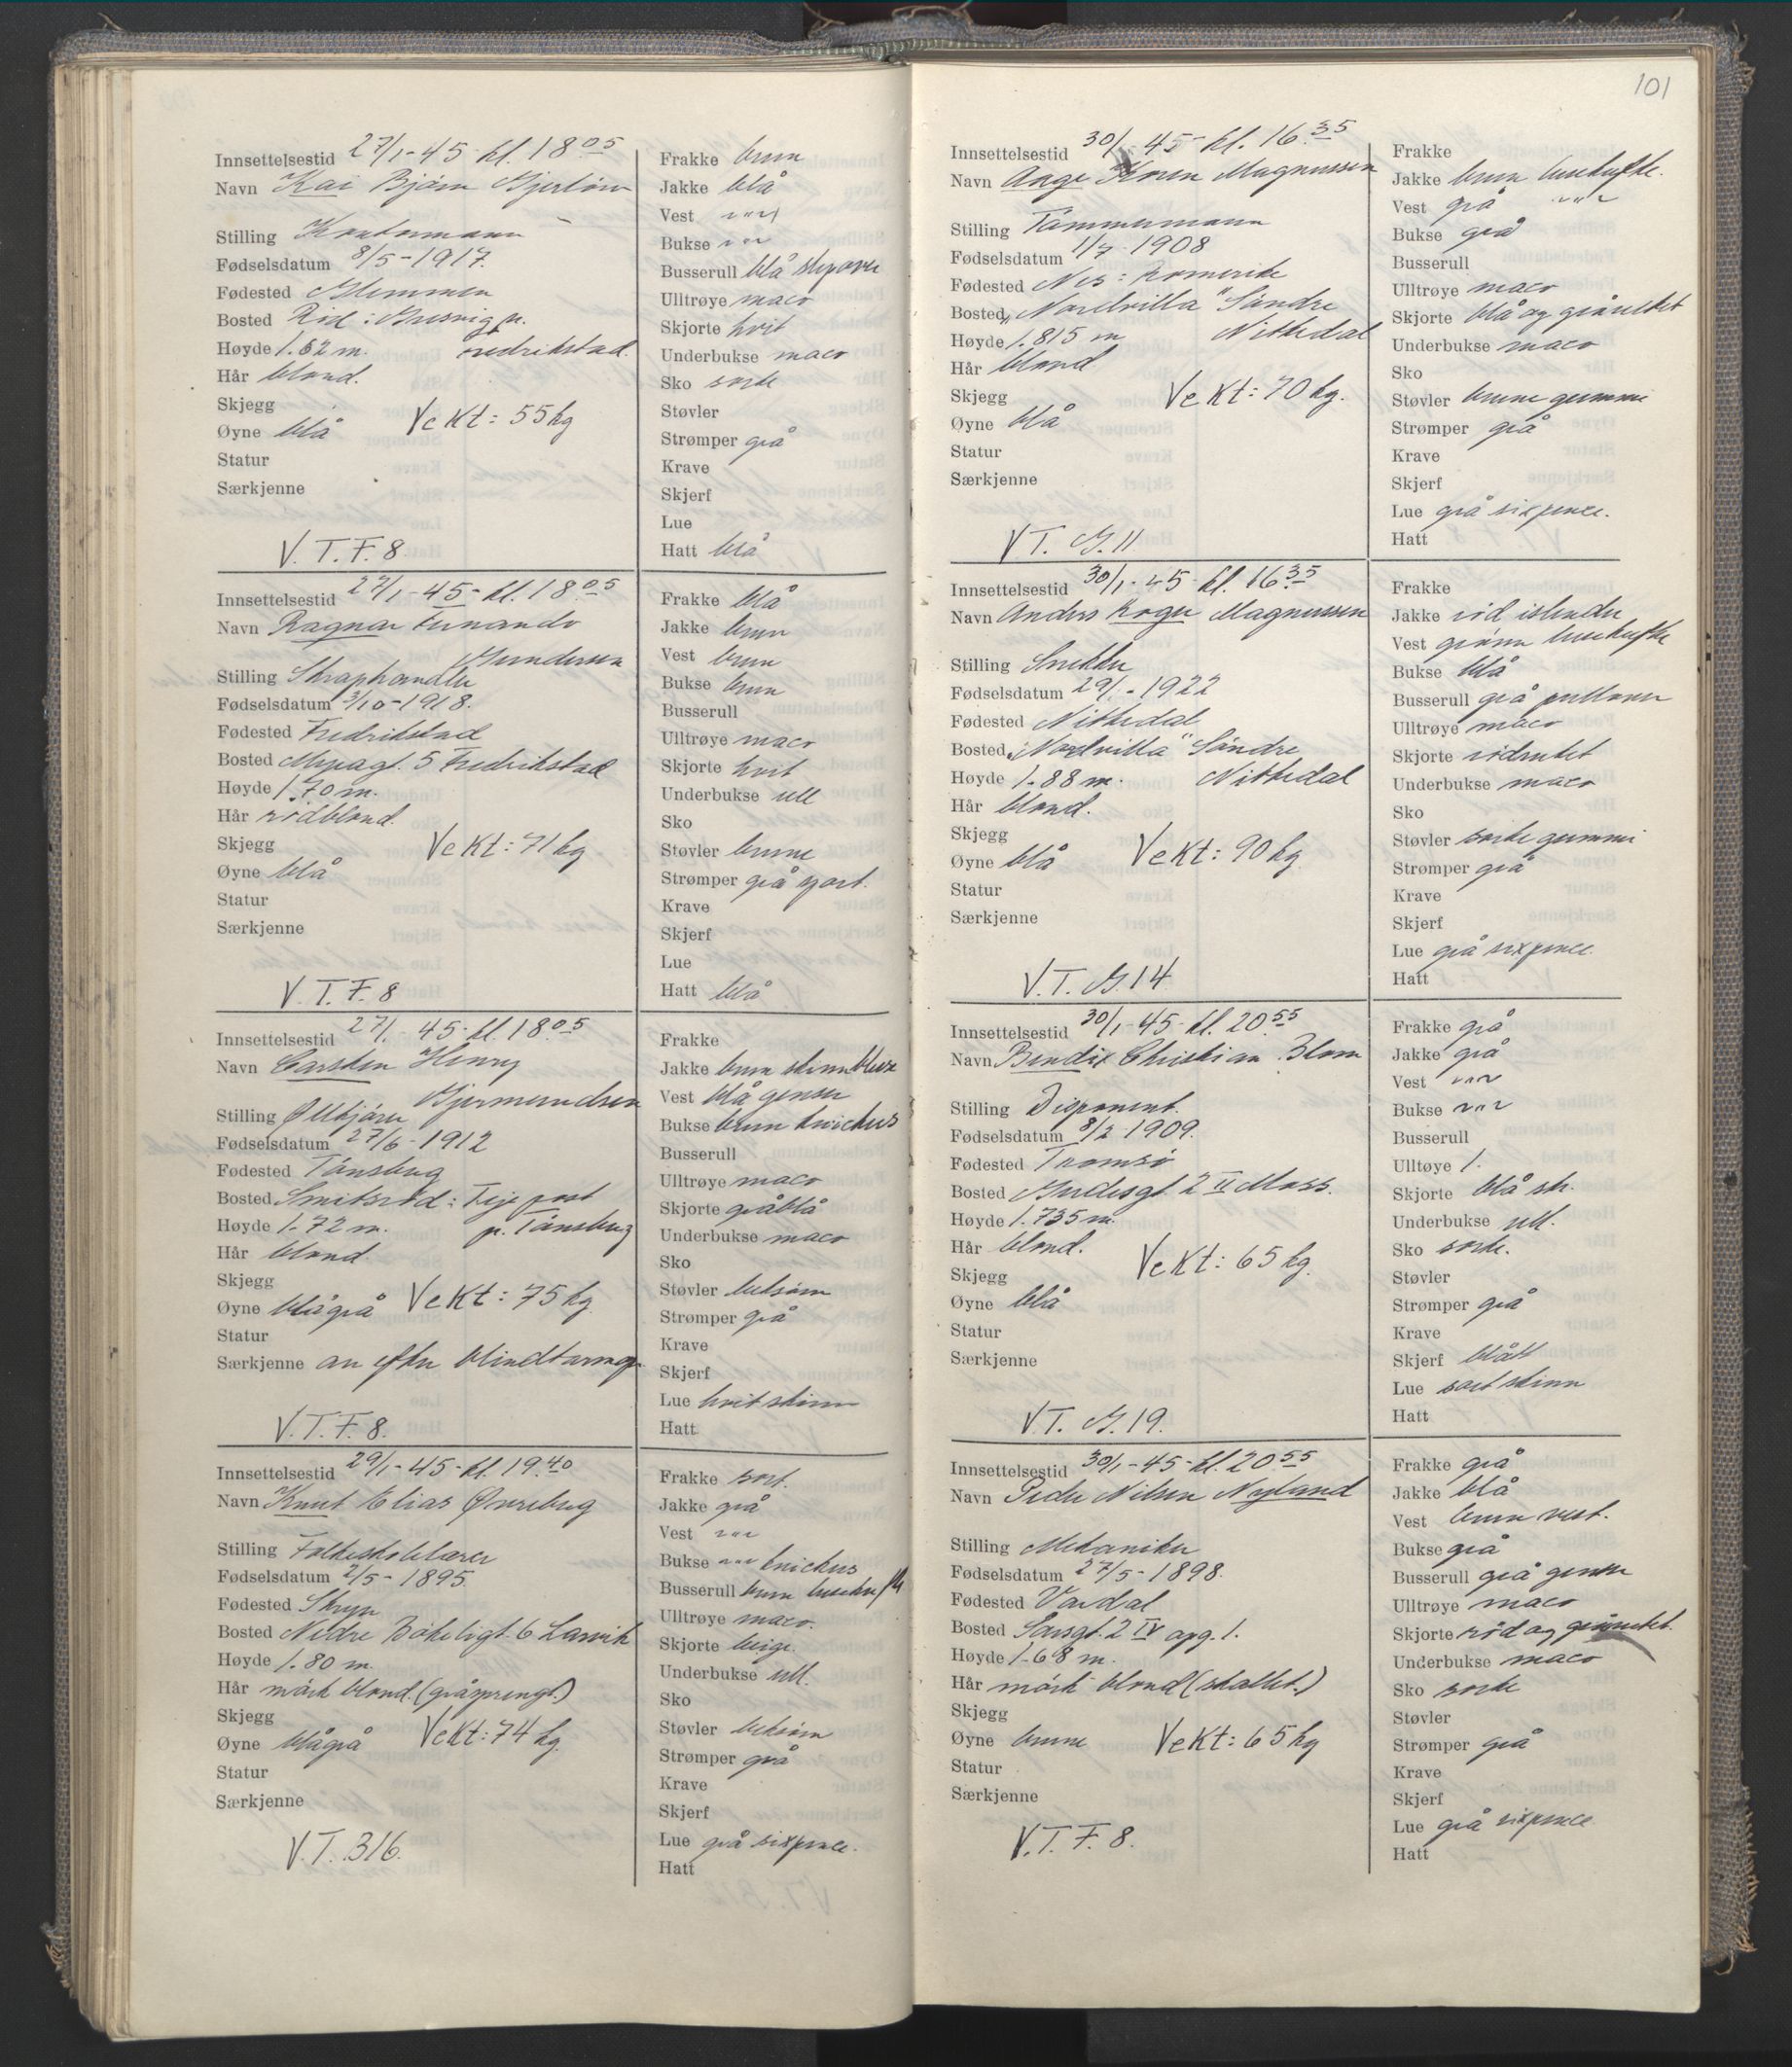 101
Innsettelsestid 27/1-45 kl. 18⁰⁵
Navn Kai Bjørn
Stilling Kontormann
Fødselsdatum 8/5-1917.
Fødested Glemmen
Bosted
Høyde 1.62 m. Fredrikstad.
Hår blond.
Skjegg
Øyne blå Vekt: 55 kg
Statur
Særkjenne
V.T.F.8.
Frakke brun
Jakke blå
Vest
Bukse
Busserull blå
Ulltrøye maco
Skjorte hvit
Underbukse maco
Sko sorte
Støvler
Strømper grå
Krave
Skjerf
Lue
Hatt blå
Innsettelsestid 27/1-45- kl. 18⁰⁵
Navn Ragnar Fernando
Gundersen
Stilling Skraphandler
Fødselsdatum 3/10-1918.
Fødested Fredrikstad
Bosted 5 Fredrikstad
Høyde 1.70 m.
Hår rødblond.
Skjegg
Øyne blå Vekt: 71 kg
Statur
Særkjenne
V.T.F.8
Frakke blå
Jakke brun
Vest brun
Bukse brun
Busserull
Ulltrøye maco
Skjorte hvit
Underbukse ull
Sko
Støvler brune
Strømper grå
Krave
Skjerf
Lue
Hatt blå
Innsettelsestid 27/1-45- kl. 18⁰⁵
Navn Carsten Henry
Gjermundsen
Stilling Ølkjører
Fødselsdatum 27/6-1912
Fødested Tønsberg
Bosted Smidsrød: Teje post
Høyde 1.72 m. p. Tønsberg
Hår blond.
Skjegg
Øyne blågrå Vekt: 75 kg.
Statur
Særkjenne arr efter
V.T.F.8.
Frakke
Jakke brun
Vest blå genser
Bukse brun knickers
Busserull
Ulltrøye maco
Skjorte gråblå
Underbukse maco
Sko
Støvler beksøm
Strømper grå
Krave
Skjerf
Lue hvit skinn
Hatt
Innsettelsestid 29/1-45- kl. 19.⁴⁰
Navn Knut Elias Øvreberg
Stilling Folkeskolelærer
Fødselsdatum 2/5-1895
Fødested Stryn
Bosted Nedre Bøkeligt. 6 Larvik
Høyde 1.80 m.
Hår mørk blond. (gråsprengt.)
Skjegg
Øyne blågrå Vekt: 74 kg.
Statur
Særkjenne
V.T. B16.
Frakke sort.
Jakke grå
Vest
Bukse knickers
Busserull brun
Ulltrøye maco.
Skjorte beige.
Underbukse ull.
Sko
Støvler beksøm
Strømper grå
Krave
Skjerf
Lue grå sixpence.
Hatt
Innsettelsestid 30/1-45- kl. 16.³⁵
Navn Aage Magnussen
Stilling Tømmermann
Fødselsdatum 1/7-1908
Fødested Nes: Romerike
Bosted „Nordvilla" Søndre
Høyde 1.815 m Nittedal
Hår blond
Skjegg Vekt: 70 kg.
Øyne blå
Statur
Særkjenne
V.T. G.11.
Frakke
Jakke brun
Vest grå
Bukse grå
Busserull
Ulltrøye maco
Skjorte blå og
Underbukse maco
Sko
Støvler brune gummi
Strømper grå
Krave
Skjerf
Lue grå sixpence.
Hatt
Innsettelsestid 30/1-45- kl. 16³⁵
Navn Anders Roger Magnussen
Stilling Snekker
Fødselsdatum 29/1-1922
Fødested Nittedal
Bosted „Nordvilla" Søndre
Høyde 1.88 m. Nittedal
Hår blond.
Skjegg
Øyne blå Vekt: 90 kg.
Statur
Særkjenne
V.T. G.14.
Frakke
Jakke rød islender
Vest grønn
Bukse blå
Busserull grå pullover
Ulltrøye maco
Skjorte rødrutet
Underbukse maco
Sko
Støvler sorte gummi
Strømper grå
Krave
Skjerf
Lue grå sixpence.
Hatt
Innsettelsestid 30/1-45- kl. 20.⁵⁵
Navn Bendix Christian Blom
Stilling Disponent.
Fødselsdatum 8/2-1909.
Fødested Tromsø
Bosted 2 II Moss.
Høyde 1.735 m.
Hår blond.
Skjegg Vekt: 65 kg.
Øyne blå
Statur
Særkjenne
V.T. G.19.
Frakke grå
Jakke grå
Vest
Bukse
Busserull
Ulltøye 1.
Skjorte blå str.
Underbukse ull.
Sko sorte.
Støvler
Strømper grå
Krave
Skjerf blått
Lue sort skinn
Hatt
Innsettelsestid 30/1-45- kl. 20.⁵⁵
Navn Peder Nilsen Nyland
Stilling Mekaniker
Fødselsdatum 27/5-1898.
Fødested Vardal
Bosted Sarsgt. 2 IV opg. 1.
Høyde 1.68 m.
Hår mørk blond (skallet.)
Skjegg
Øyne brune Vekt: 65 kg
Statur
Særkjenne
V.T.F.8.
Frakke grå
Jakke blå
Vest brun vest.
Bukse grå
Busserull grå genser
Ulltrøye maco
Skjorte rød og
Underbukse maco
Sko sorte
Støvler
Strømper grå
Krave
Skjerf
Lue grå sixpence
Hatt